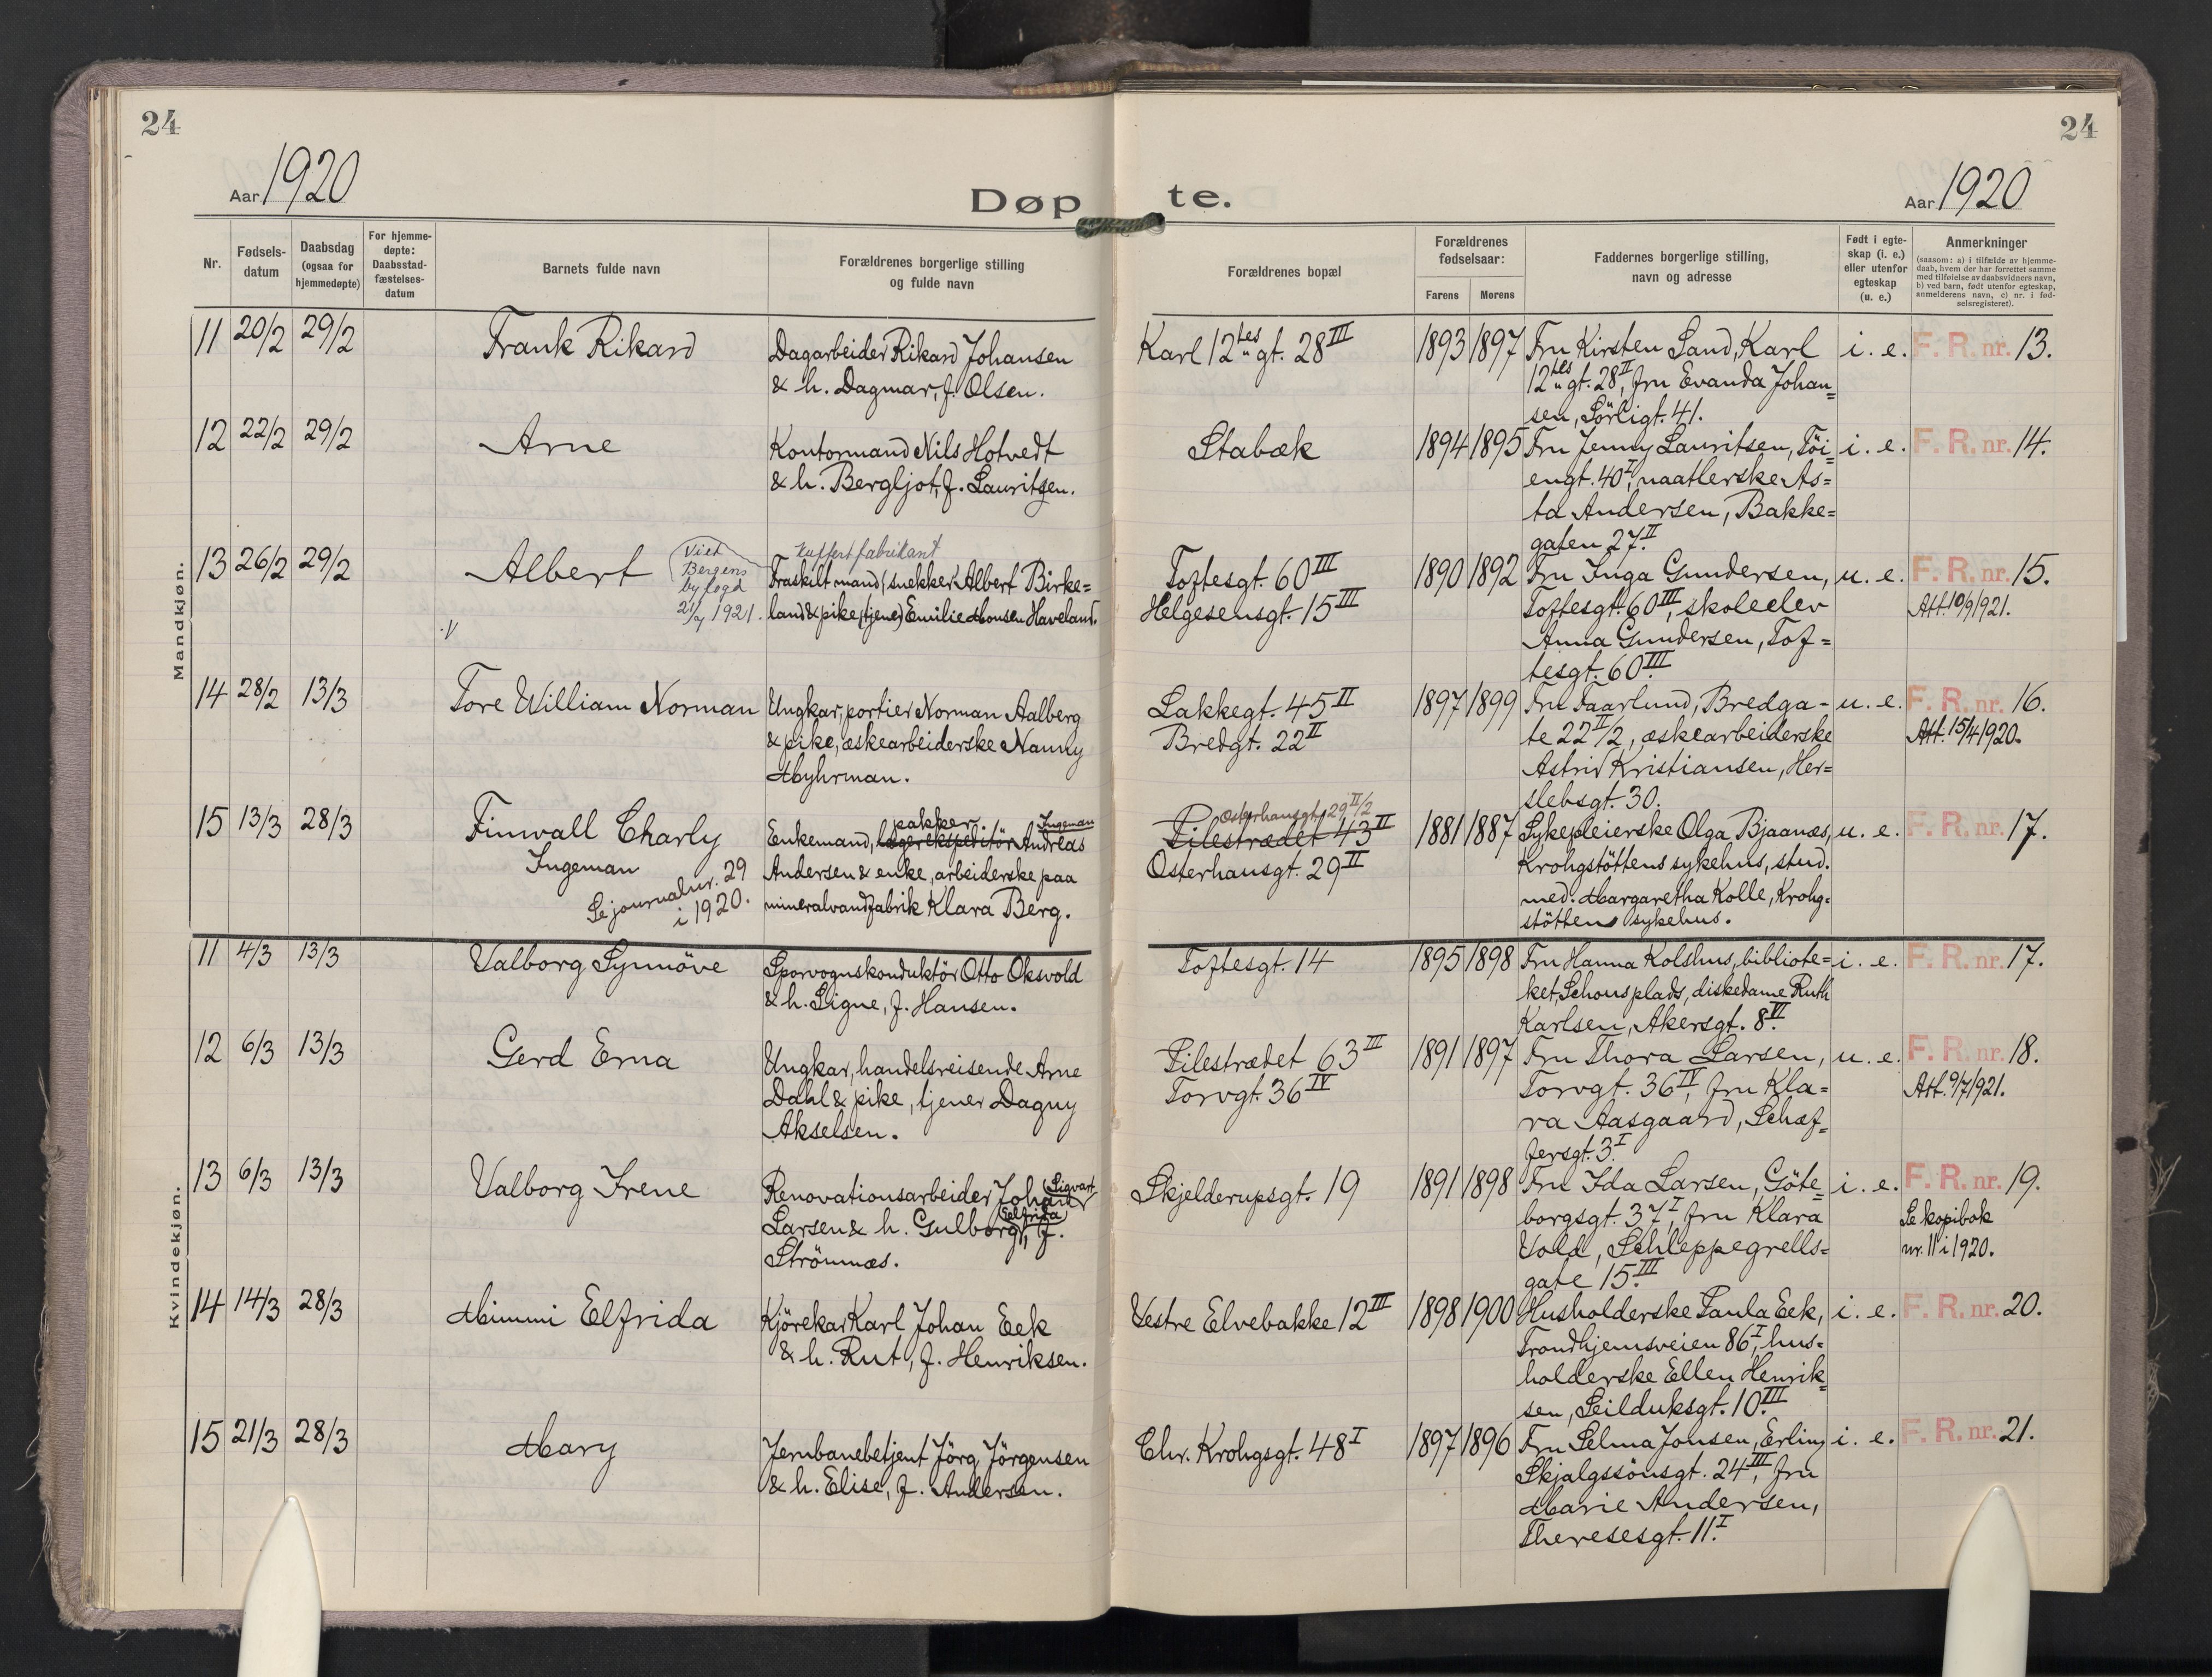 24
24
Aar 1920
Døpte.
Aar 1920
Nr.
Fødsels-
datum
Daabsdag
(ogsaa for
hjemmedøpte)
For hjemme-
døpte:
Daabsstad-
fæstelses-
datum
Barnets fulde navn
Forældrenes borgerlige stilling
og fulde navn
Forældrenes bopæl
Forældrenes
fødselsaar:
Farens
Morens
Faddernes borgerlige stilling,
navn og adresse
Født i egte-
skap (i. e.)
eller utenfor
egteskap
(u. e.)
Anmerkninger
(saasom: a) i tilfælde av hjemme-
daab, hvem der har forrettet samme
med tilføielse av daabsvidners navn,
b) ved barn, født utenfor egteskap,
anmelderens navn, c) nr. i fød-
selsregisteret).
Mandkjøn.
11 20/2 29/2
Frank Rikard
Dagarbeider Rikard Johansen
& h. Dagmar, f. Olsen.
Karl 12tes gt. 28 III
1893 1897
Fru Kirsten Sand, Karl
12tes gt. 28 II, fru Evanda Johan=
sen, Sörligt. 41.
i. e.
F. R. nr. 13.
12 22/2 29/2
Arne
Kontormand Nils Hotvedt
& h. Bergljot, f. Lauritsen.
Stabæk
1894 1895
Fru Jenny Lauritsen, Töi=
engt. 40 I, naatlerske As=
ta Andersen, Bakke=
gaten 27 II.
i. e.
F. R. nr. 14.
13 26/2 29/2
Albert
Viet
Bergens
byfogd
21/7 1921.
Kuffertfabrikant
Fraskilt mand, snekker Albert Birke=
land & pike (tjener) Emilie Monsen Haveland.
Toftesgt. 60 III
Helgesensgt. 15 III
1890 1892
Fru Inga Gundersen,
Toftesgt. 60 III, skoleelev
Anna Gundersen, Tof=
tesgt. 60 III.
u. e.
F. R. nr. 15.
Att. 10/9 1921.
14 28/2 13/3
Tore William Norman
Ungkar, portier Norman Aalberg
& pike, æskearbeiderske Nanny
Myhrman.
Lakkegt. 45 II
Bredgt. 22 II
1897 1899
Fru Faarlund, Bredga-
te 22 II/2, æskearbeiderske
Astrid Kristiansen, Her=
slebsgt. 30.
u. e.
F. R. nr. 16.
Att. 15/4 1920.
15 13/3 28/3
Finwall Charly
Ingeman
Se journalnr. 29
i 1920.
pakker
Ingeman
Enkemand, lagerekspeditör Andreas
Andersen & enke, arbeiderske paa
mineralvandfabrik Klara Berg.
Osterhausgt. 29 II/2
Pilestrædet 43 II
Osterhausgt. 29 II
1881 1887
Sykepleierske Olga Bjaanæs,
Krohgstöttens sykehus, stud.
med. Margaretha Kolle, Krohg=
stöttens sykehus.
u. e.
F. R. nr. 17.
Kvindekjøn.
11 4/3 13/3
Valborg Synnöve
Sporvognskonduktör Otto Oksvold
& h. Signe, f. Hansen.
Toftesgt. 14
1895 1898
Fru Hanna Kolshus, bibliote=
ket, Schous plads, diskedame Ruth
Karlsen, Akersgt. 8 VI.
i. e.
F. R. nr. 17.
12 6/3 13/3
Gerd Erna
Ungkar, handelsreisende Arne
Dahl & pike, tjener Dagny
Akselsen.
Pilestrædet 63 III
Torvgt. 36 IV
1891 1897
Fru Thora Larsen,
Torvgt. 36 IV, fru Kla=
ra Aasgaard, Schaf=
fersgt. 3 I.
u. e.
F. R. nr. 18.
Att. 9/7 1921.
13 6/3 13/3
Valborg Irene
Renovationsarbeider Johan Sigvart
Larsen & h. Gulborg Elfrida, f.
Strömnæs.
Skjelderupsgt. 19
1891 1898
Fru Ida Larsen, Göte=
borgsgt. 37 I, fru Klara
Vold, Schleppegrells=
gate 15 III.
i. e.
F. R. nr. 19.
Se kopibok
nr. 11 i 1920.
14 14/3 28/3
Mimmi Elfrida
Kjörekar Karl Johan Eek
& h. Rut, f. Henriksen.
Vestre Elvebakke 12 III
1898 1900
Husholderske Paula Eek,
Trondhjemsveien 86 I, hus=
holderske Ellen Henrik=
sen, Seilduksgt. 10 III.
i. e.
F. R. nr. 20.
15 21/3 28/3
Mary
Jernbanebetjent Jörg. Jörgensen
& h. Elise, f. Andersen.
Chr. Krohgsgt. 48 I
1897 1896
Fru Selma Jonsen, Erling
Skjalgssönsgt. 24 III, fru
Marie Andersen,
Theresesgt. 11 I.
i. e.
F. R. nr. 21.